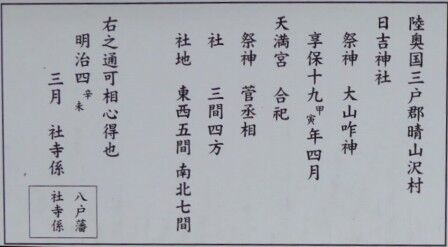 陸奥国三戸郡晴山沢村
日吉神社
祭神 大山咋神
享保十九甲寅年四月
天満宮 合祀
祭神 菅丞相
社 三間四方
社地 東西五間 南北七間
右之通可相心得也
明治四辛未
三月 社寺係
八戸藩
社寺係